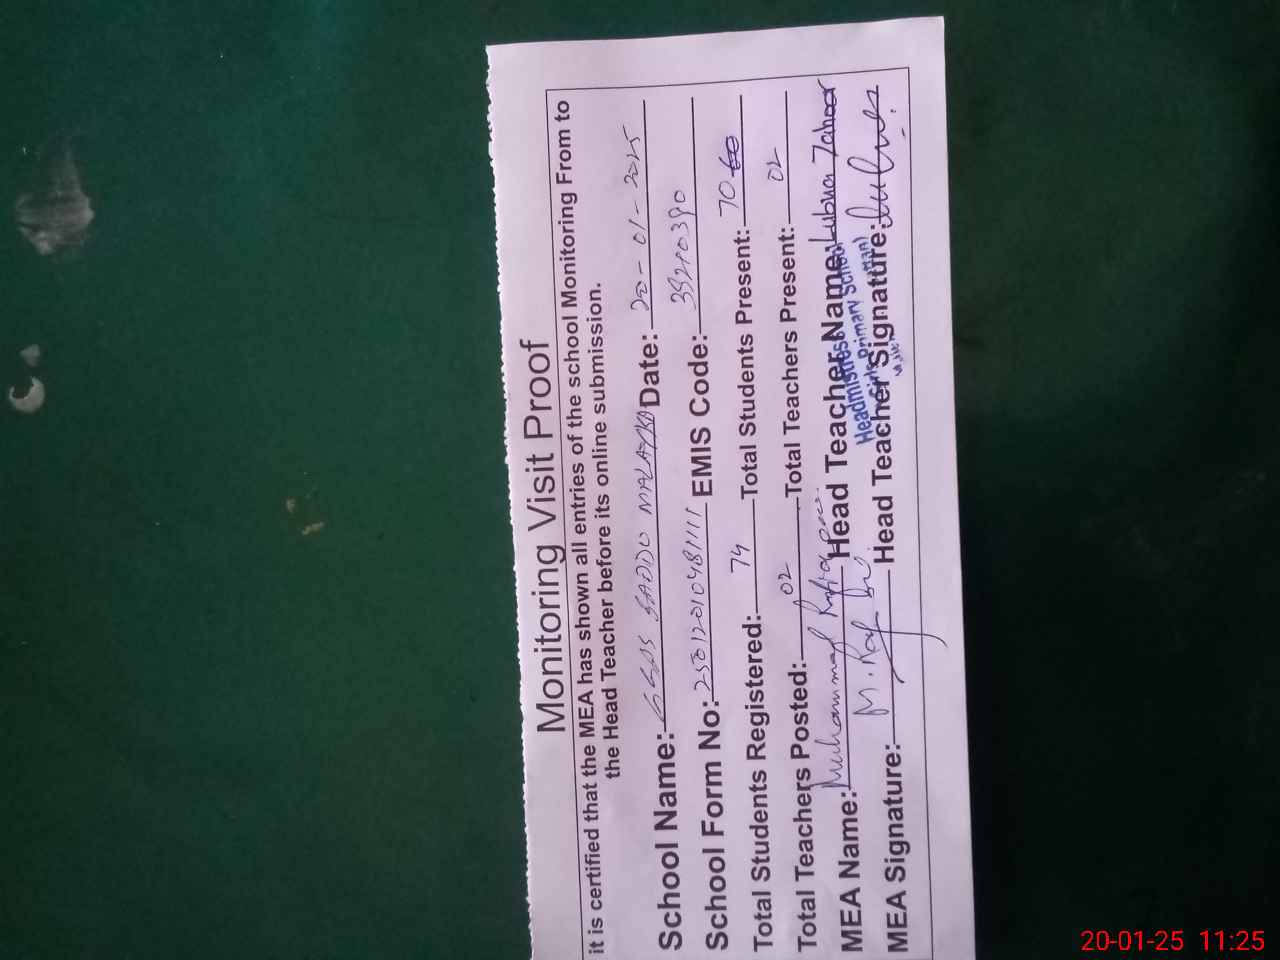 Monitoring Visit Proof
it is certified that the MEA has shown all entries of the school Monitoring From to
the Head Teacher before its online submission.
School Name: GGPS SADDU MALAYKA Date: 20-01-2025
School Form No: 25012010481111 EMIS Code: 39210390
Total Students Registered: 74 Total Students Present: 70
Total Teachers Posted: 02 Total Teachers Present: 02
MEA Name: Muhammad Head Teacher Name: Lubna Zahoor
Headmistress
Girls Primary School
MEA Signature: M. Head Teacher Signature:
20-01-25 11:25